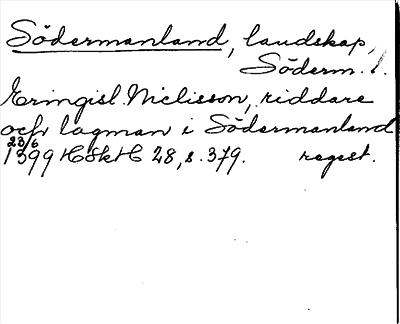 Södermanland, landskap,
Söderm. l.
Eringisl Niclisson, riddare
och lagman i Södermanland
23/6
1399 HSkH 28, s. 379. regest.